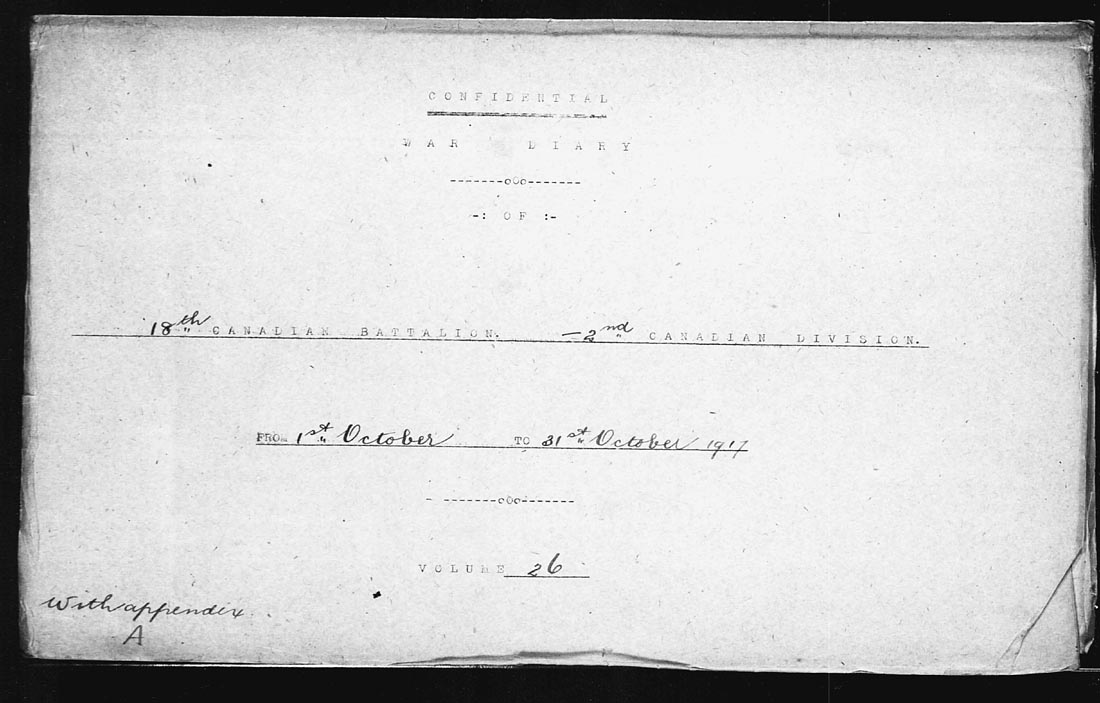 CONFIDENTIAL
WAR DIARY
-------oOo-------
-: OF :-
18th CANADIAN BATTALION. - 2nd CANADIAN DIVISION.
FROM 1st October TO 31st October 1917
- -------oOo-------
VOLUME 26
With appendix
A